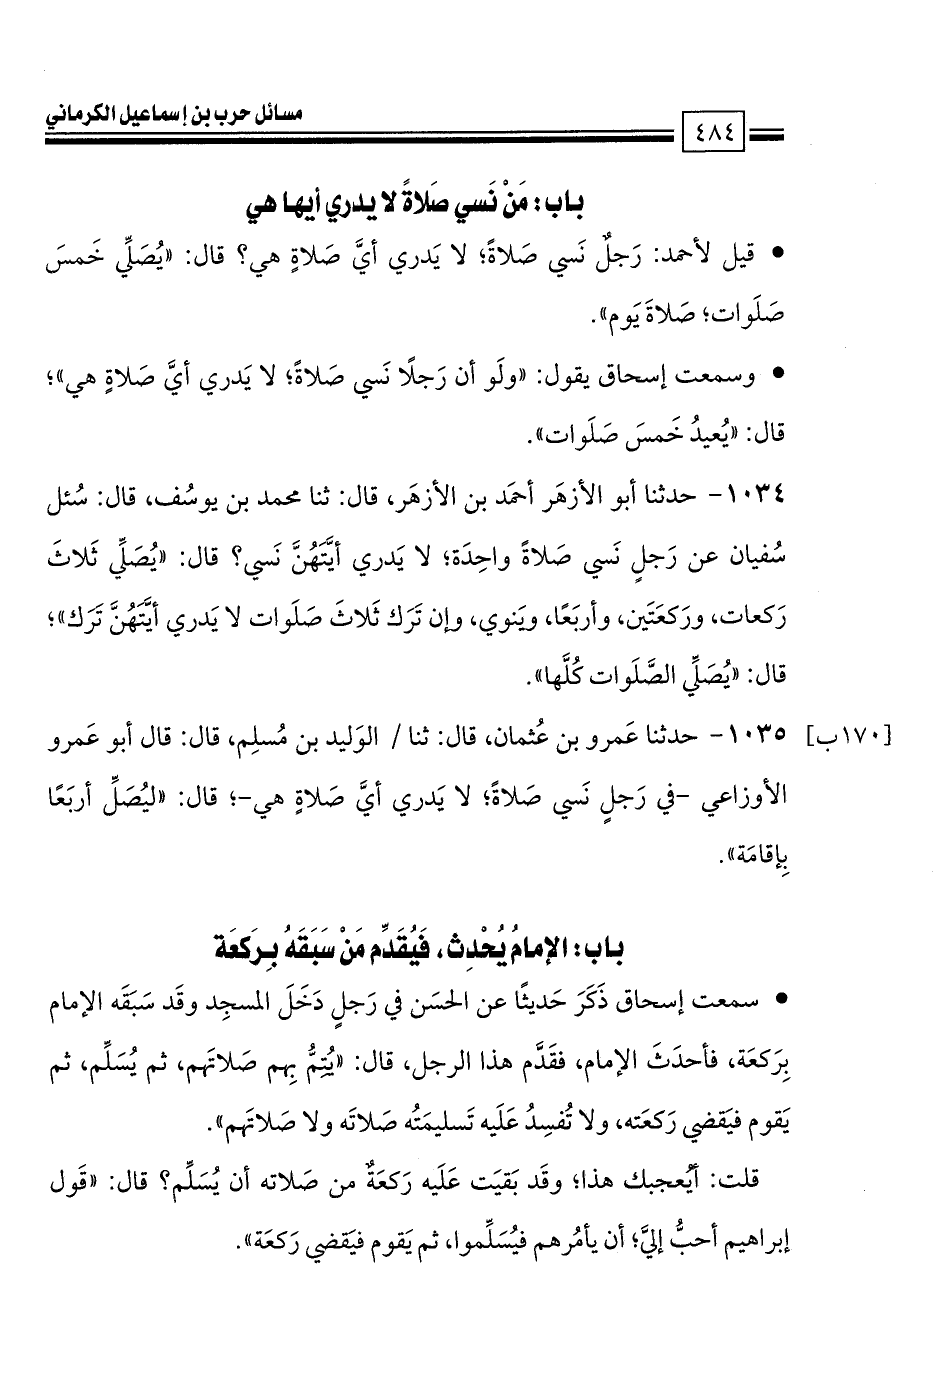 مسائل حرب بن إسماعيل الكرماني
٤٨٤
باب: مَنْ نَسي صَلاةً لا يدري أيها هي
• قيل لأحمد: رَجلٌ نَسي صَلاةً؛ لا يَدري أيَّ صَلاةٍ هي؟ قال: «يُصَلِّي خَمسَ
صَلَوات؛ صَلاةَ يَوم».
• وسمعت إسحاق يقول: «ولَو أن رَجلًا نَسي صَلاةً؛ لا يَدري أيَّ صَلاةٍ هي»؛
قال: «يُعيدُ خَمسَ صَلَوات».
١٠٣٤- حدثنا أبو الأزهَر أحمَد بن الأزهَر، قال: ثنا محمد بن يوسُف، قال: سُئل
سُفيان عن رَجلٍ نَسي صَلاةً واحِدَة؛ لا يَدري أيَّتَهُنَّ نَسي؟ قال: «يُصَلِّي ثَلاثَ
رَكعات، ورَكعَتَين، وأربَعًا، ويَنوي، وإن تَرَك ثَلاثَ صَلَوات لا يَدري أيَّتَهُنَّ تَرَك»؛
قال: «يُصَلِّي الصَّلَوات كُلَّها».
[١٧٠ب] ١٠٣٥- حدثنا عَمرو بن عُثمان، قال: ثنا / الوَليد بن مُسلِم، قال: قال أبو عَمرو
الأوزاعي -في رَجلٍ نَسي صَلاةً؛ لا يَدري أيَّ صَلاةٍ هي-؛ قال: «ليُصَلِّ أربَعًا
بِإقامَة».
باب: الإمامُ يُحْدِث، فَيُقَدِّم مَنْ سَبَقَهُ بِرَكعَة
• سمعت إسحاق ذَكَرَ حَديثًا عن الحسَن في رَجلٍ دَخَلَ المسجِد وقَد سَبَقَه الإمام
بِرَكعَة، فأحدَثَ الإمام، فقَدَّم هذا الرجل، قال: «يُتِمُّ بِهم صَلاتَهم، ثم يُسَلِّم، ثم
يَقوم فيَقضي رَكعَته، ولا تُفسِدُ عَلَيه تَسليمَتُه صَلاتَه ولا صَلاتَهم».
قلت: أيُعجبك هذا؛ وقَد بَقيَت عَلَيه رَكعَةٌ من صَلاته أن يُسَلِّم؟ قال: «قَول
إبراهيم أحبُّ إليَّ؛ أن يأمُرهم فيُسَلِّموا، ثم يَقوم فيَقضي رَكعَة».